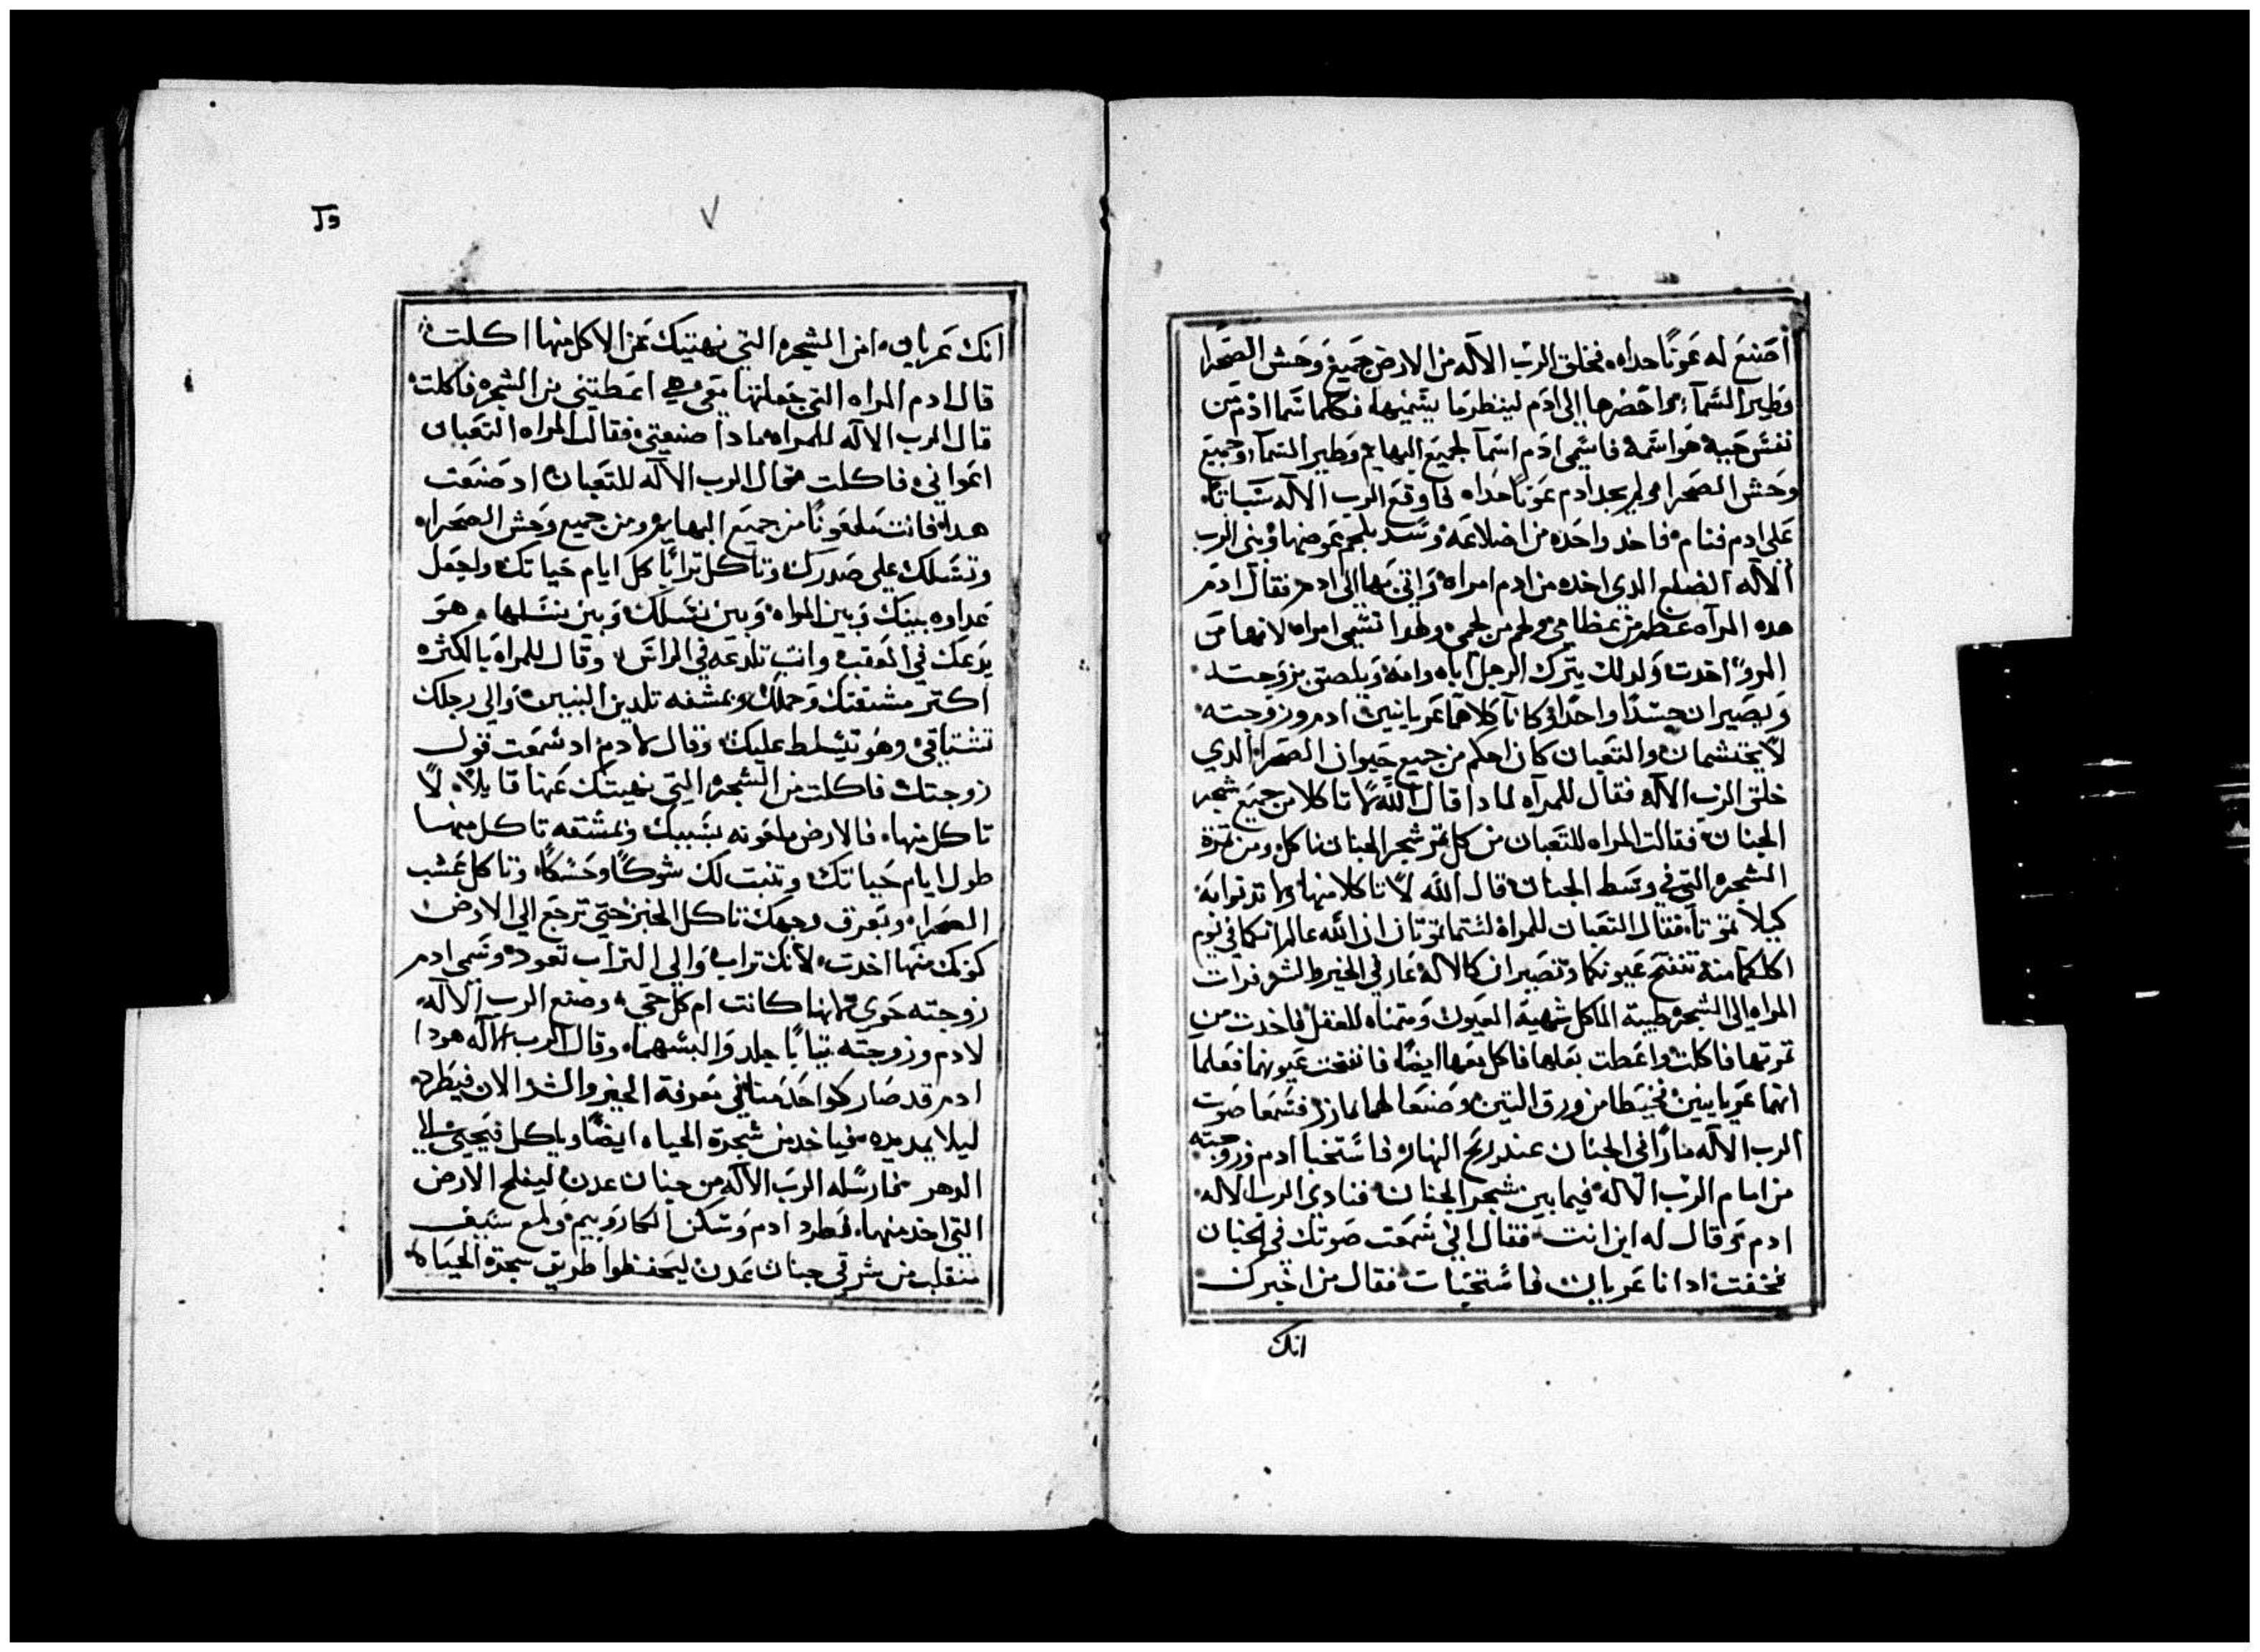 أصنع له عونًا حداه فخلق الرب الاله من الارض جميع وحش الصحرا
وطير السمآء واحضرها إلى ادم لينظر ما يسميها فكلما سما ادم من
نفس حيه هو اسمه فاسمى ادم اسمآ لجميع البهايم وطير السمآء وجميع
وحش الصحرا ولم يجد ادم عونًا حداه فاوقع الرب الاله سباتًا
على ادم فنام فاخد واحده من اضلاعه وسد بلحم عوضها وبنى الرب
الاله الضلع الدي اخده من ادم امراه واتى بها الى ادم فقال ادم
هده المرآه عظم من عظامي ولحم من لحمي ولهدا تسمى امراه لانها من
المرؤ اخدت ولدلك يترك الرجل آباه وامه ويلصق بزوجته
ويصيران جسدًا واحدًا وكانآ كلاهما عريانين ادم وزوجته
لا يحتشمان والتعبان كان احكم من جميع حيوان الصحرا الدي
خلق الرب الاله فقال للمرآه لمادا قال الله لا تاكلا من جميع شجر
الجنان فقالت المراه للتعبان من كل تمر شجر الجنان ناكل ومن تمرة
الشجره التي في وسط الجنان قال الله لا تاكلا منها ولا تدنوا به
كيلا تموتا فقال التعبان للمراه لستما تموتان ان الله عالم انكما في يوم
اكلكما منه تنفتح عيونكما وتصيران كالاله عارفي الخير والشر فرات
المراه الى الشجره طيبة الماكل شهية العيون ومتمناه للعقل فاخدت من
تمرتها فاكلت واعطت بعلها فاكل معها ايضًا فانفتحت عيونهما فعلما
انهما عريانين فخيطا من ورق التين وصنعا لهما مازر فسمعا صوت
الرب الاله مارًا في الجنان عند ريح النهار فاستخبا ادم وزوجته
من امام الرب الاله فيما بين شجر الجنان فنادى الرب الاله
ادم وقال له اين انت فقال اني سمعت صوتك في الجنان
فخفت ادانا عريان فاستخبات فقال من اخبرك
انك
٧
انك عريان امن الشجره التي نهيتك عن الاكل منها اكلت
قال ادم المراه التي جعلتها معي هي اعطيتني من الشجره فاكلت
قال الرب الاله للمراه مادا صنعتي فقالت المراه التعبان
اغواني فاكلت فقال الرب الاله للتعبان اد صنعت
هدا فانت ملعونًا من جميع البهايم ومن جميع وحش الصحرا
وتسلك على صدرك وتاكل ترابًا كل ايام حياتك ولجعل
عداوه بينك وبين المراه وبين نسلك وبين نسلها وهو
يدعك في العقب وانت تلدعه في الراس وقال للمراه بالكتره
اكتر مشقتك وحملك وبمشقه تلدين البنين والى رجلك
تشتاقي وهو يتسلط عليك وقال لادم اد سمعت قول
زوجتك فاكلت من الشجره التي نهيتك عنها قايلا لا
تاكل منها فالارض ملعونه بسببك وبمشقه تاكل منها
طول ايام حياتك وتنبت لك شوكًا وحسكًا وتاكل عشب
الصحرا وبعرق وجهك تاكل الخبز حتى ترجع الى الارض
كونك منها اخدت لانك تراب والى التراب تعود وسمى ادم
زوجته حوى لانها كانت ام كل حي وصنع الرب الاله
لادم وزوجته تيابًا جلد والبسهما وقال الرب الاله هودا
ادم قد صار كواحد منا في معرفة الخير والشر والان فيطرد
ليلا يمد يده فياخد من شجرة الحياه ايضًا وياكل فيحيى الى
الدهر فارسله الرب الاله من جنان عدن ليفلح الارض
التي اخد منها فطرد ادم وسكن الكاروبيم ولمع سيف
متقلب من شرقي جنان عدن ليحفظوا طريق شجرة الحياه